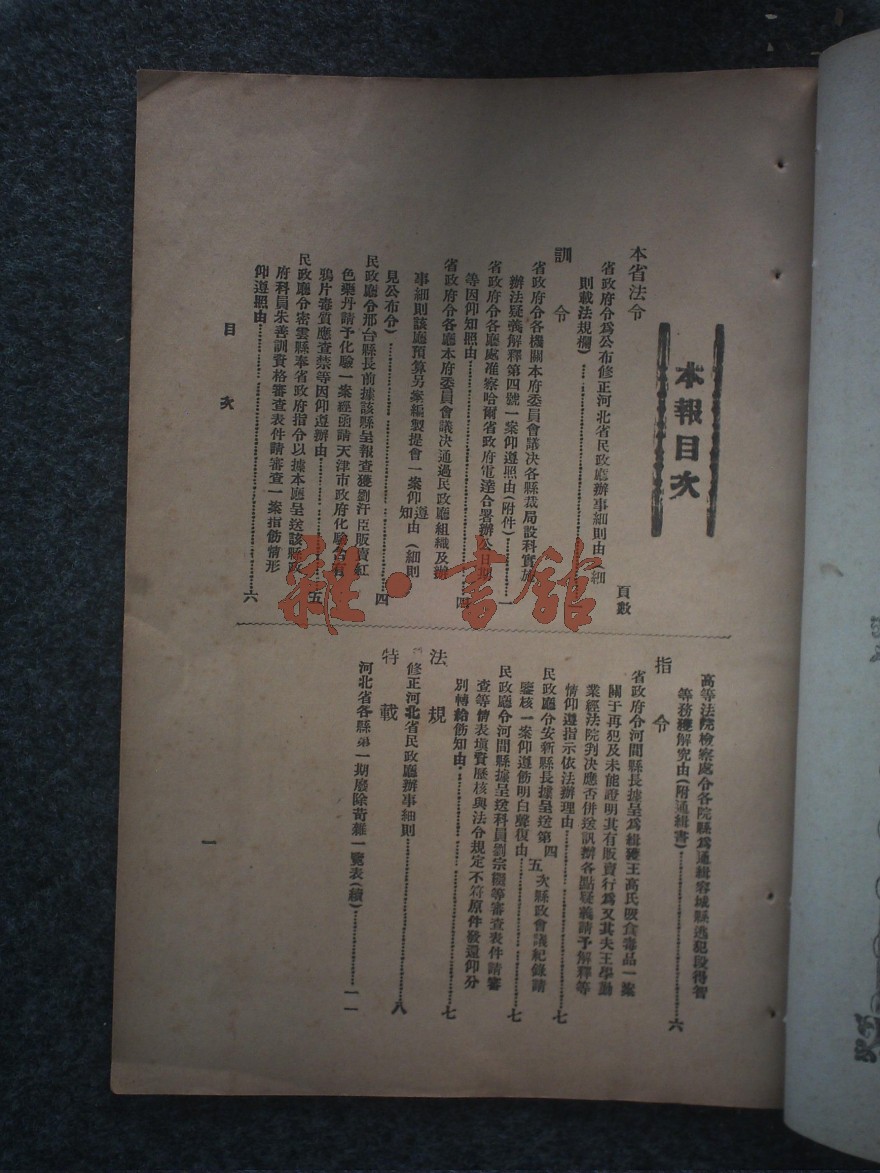 本報目次
頁數
本省法令
省政府令為公布修正河北省民政廳辦事細則由(細
則載法規欄)
訓令
省政府令各機關本府委員會議决各縣裁局設科實施
辦法疑義解釋第四號一案仰遵照由(附件)一
省政府令各廳處准察哈爾省政府電達合署辦公日期
等因仰知照由四
省政府令各廳本府委員會議决通過民政廳組織及辦
事細則該廳預算另案編製提會一案仰遵知由(細則
見公布令)四
民政廳令邢台縣長前據該縣呈報查獲劉汗臣販賣紅
色藥丹請予化驗一案經函請天津市政府化驗含有
鴉片毒質應查禁等因仰遵辦由五
民政廳令密雲縣奉省政府指令以據本廳呈送該縣政
府科員朱善訓資格審查表件請審查一案指飭情形
仰遵照由六
高等法院檢察處令各院縣為通緝容城縣逃犯段得智
等務獲解究由(附通緝書)六
指令
省政府令河間縣長據呈為緝獲王高氏販食毒品一案
關于再犯及未能證明其有販賣行為又其夫王學勤
業經法院判决應否併送訊辦各點疑義請予解釋等
情仰遵指示依法辦理由七
民政廳令安新縣長據呈送第四五次縣政會議紀錄請
鑒核一案仰遵飭明白聲復由七
民政廳令河間縣據呈送科員劉宗等審查表件請審
查等情表填資歷核與法令規定不符原件發還仰分
別轉給飭知由七
法規
修正河北省民政廳辦事細則八
特載
河北省各縣第一期廢除苛雜一覽表(續)一一
目次
一
雜·書館